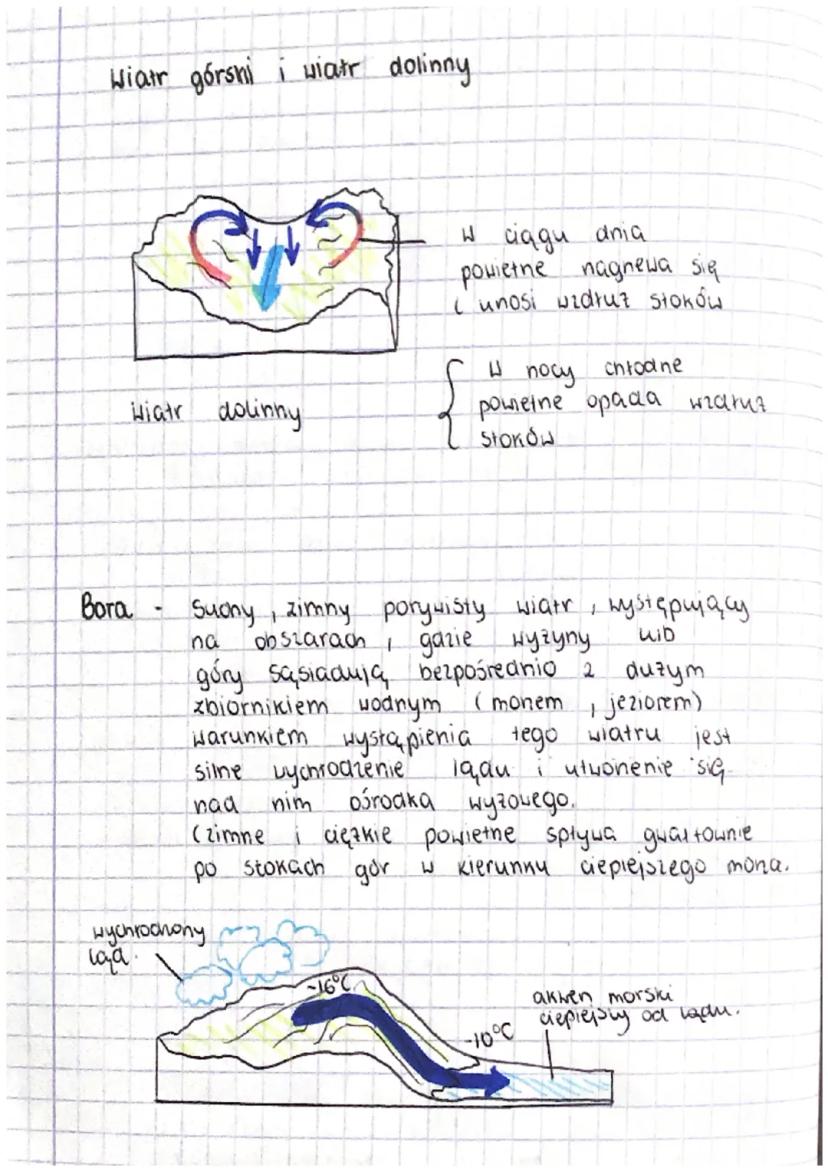 Wiatr górski i wiatr dolinny
W ciągu dnia
powietrze nagrzewa się
i unosi wzdłuż stoków
W nocy chłodne
powietrze opada wzdłuż
stoków
Wiatr dolinny
Bora - Suchy, zimny porywisty wiatr, występujący
na obszarach, gdzie wyżyny lub
góry sąsiadują bezpośrednio z dużym
zbiornikiem wodnym (morzem, jeziorem)
warunkiem wystąpienia tego wiatru jest
silne wychłodzenie lądu i utworzenie się
nad nim ośrodka wyżowego.
(zimne i ciężkie powietrze spływa gwałtownie
po stokach gór w kierunku cieplejszego morza.
wychłodzony
ląd.
-16°C
-10°C
akwen morski
cieplejszy od lądu.